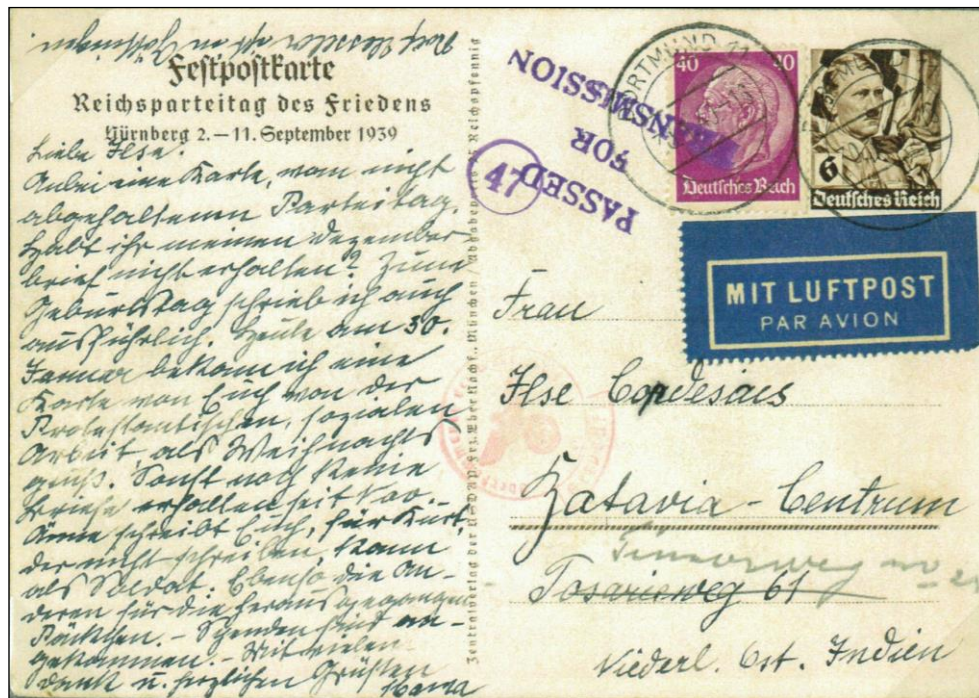 Festpostkarte
Reichsparteitag des Friedens
Nürnberg 2.–11. September 1939
Liebe Ilse!
Anbei eine Karte, vom nicht
abgehaltenen Parteitag.
Habt ihr meinen Dezember
brief nicht erhalten? Zum
Geburtstag schrieb ich auch
ausführlich. Heute am 30.
Januar bekam ich eine
Karte von Euch von der
Protestantischen, sozialen
Arbeit, als Weihnachts
gruß. Sonst noch keine
Briefe erhalten seit Nov. –
Änne schreibt Euch, für Kurt,
der nicht schreiben kann
als Soldat. Ebenso die An-
deren für die
Päckchen. – Spenden sind an-
gekommen. – Mit vielem
Dank u. herzlichen Grüßen
Zentralverlag der NSDAP. Frz. Eher Nachf., München / Reichspfennig
PASSED
FOR
TRANSMISSION
47
DORTMUND
40 40
Deutsches Reich
DORTMUND
6
Deutsches Reich
MIT LUFTPOST
PAR AVION
Frau
Ilse Cordesius
Batavia – Centrum
Timorweg no 2
Tosariweg 61
Niederl. Ost. Indien